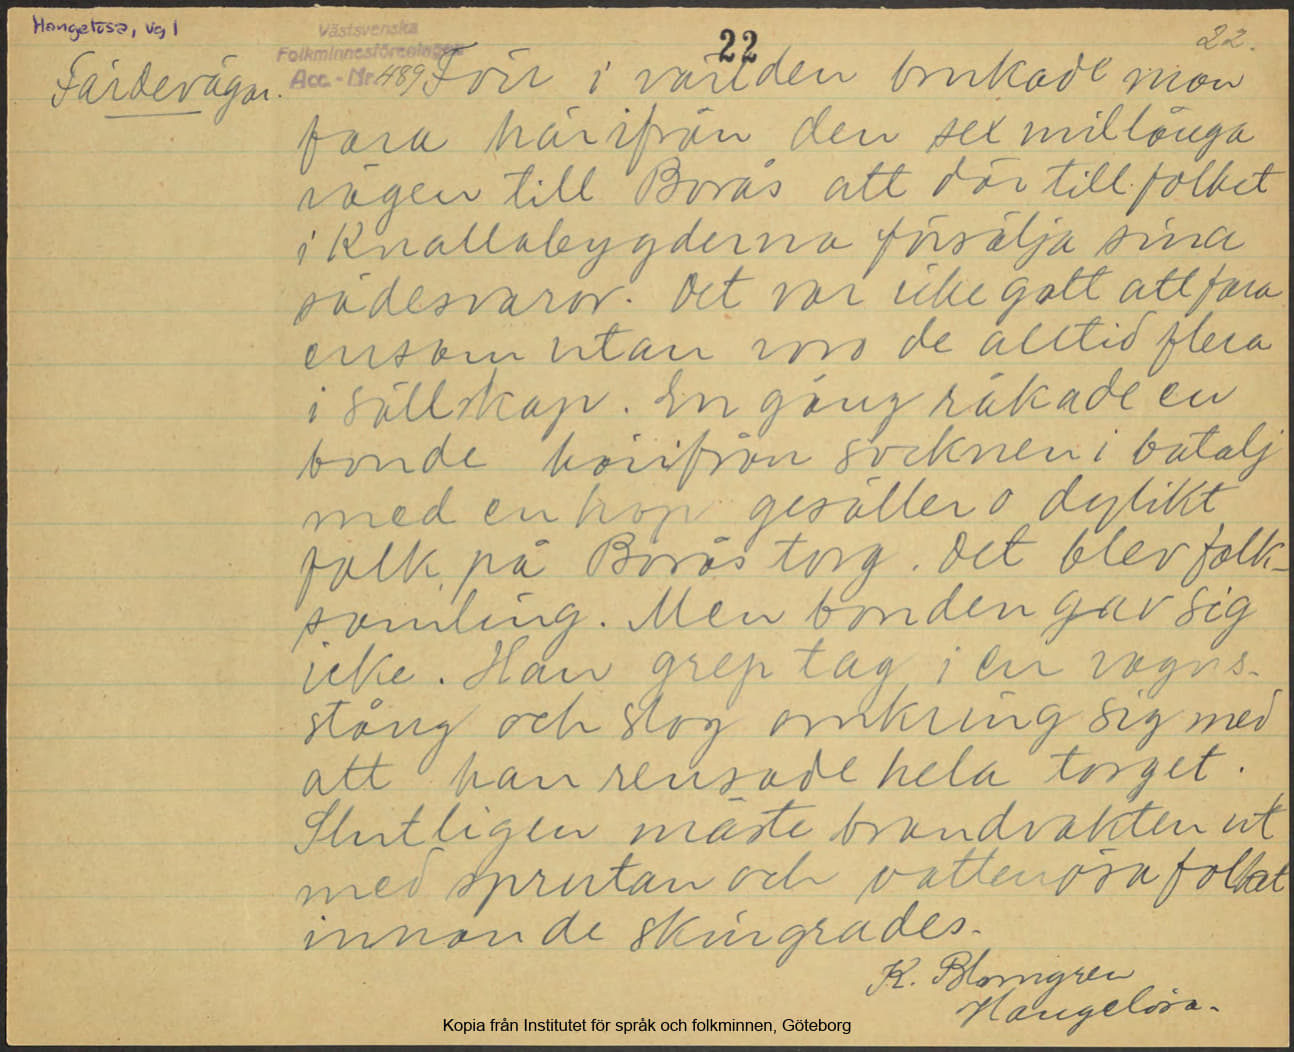 Hangelösa, Vg 1
Västsvenska
Folkminnesföreningen
Acc.-Nr. 489
22
22.
Färdevägar.
Förr i världen brukade man
fara härifrån den sex millånga
vägen till Borås att där till folket
i Knallabygderna försälja sina
sädesvaror. Det var icke gott att fara
ensam utan voro de alltid flera
i sällskap. En gång råkade en
bonde härifrån socknen i batalj
med en hop gesäller o dylikt
folk på Borås torg. Det blev folk-
samling. Men bonden gav sig
icke. Han grep tag i en vagns-
stång och slog omkring sig med
att han rensade hela torget.
Slutligen måste brandvakten ut
med sprutan och vattenösa folket
innan de skingrades.
K. Blomgren
Hangelösa.
Kopia från Institutet för språk och folkminnen, Göteborg